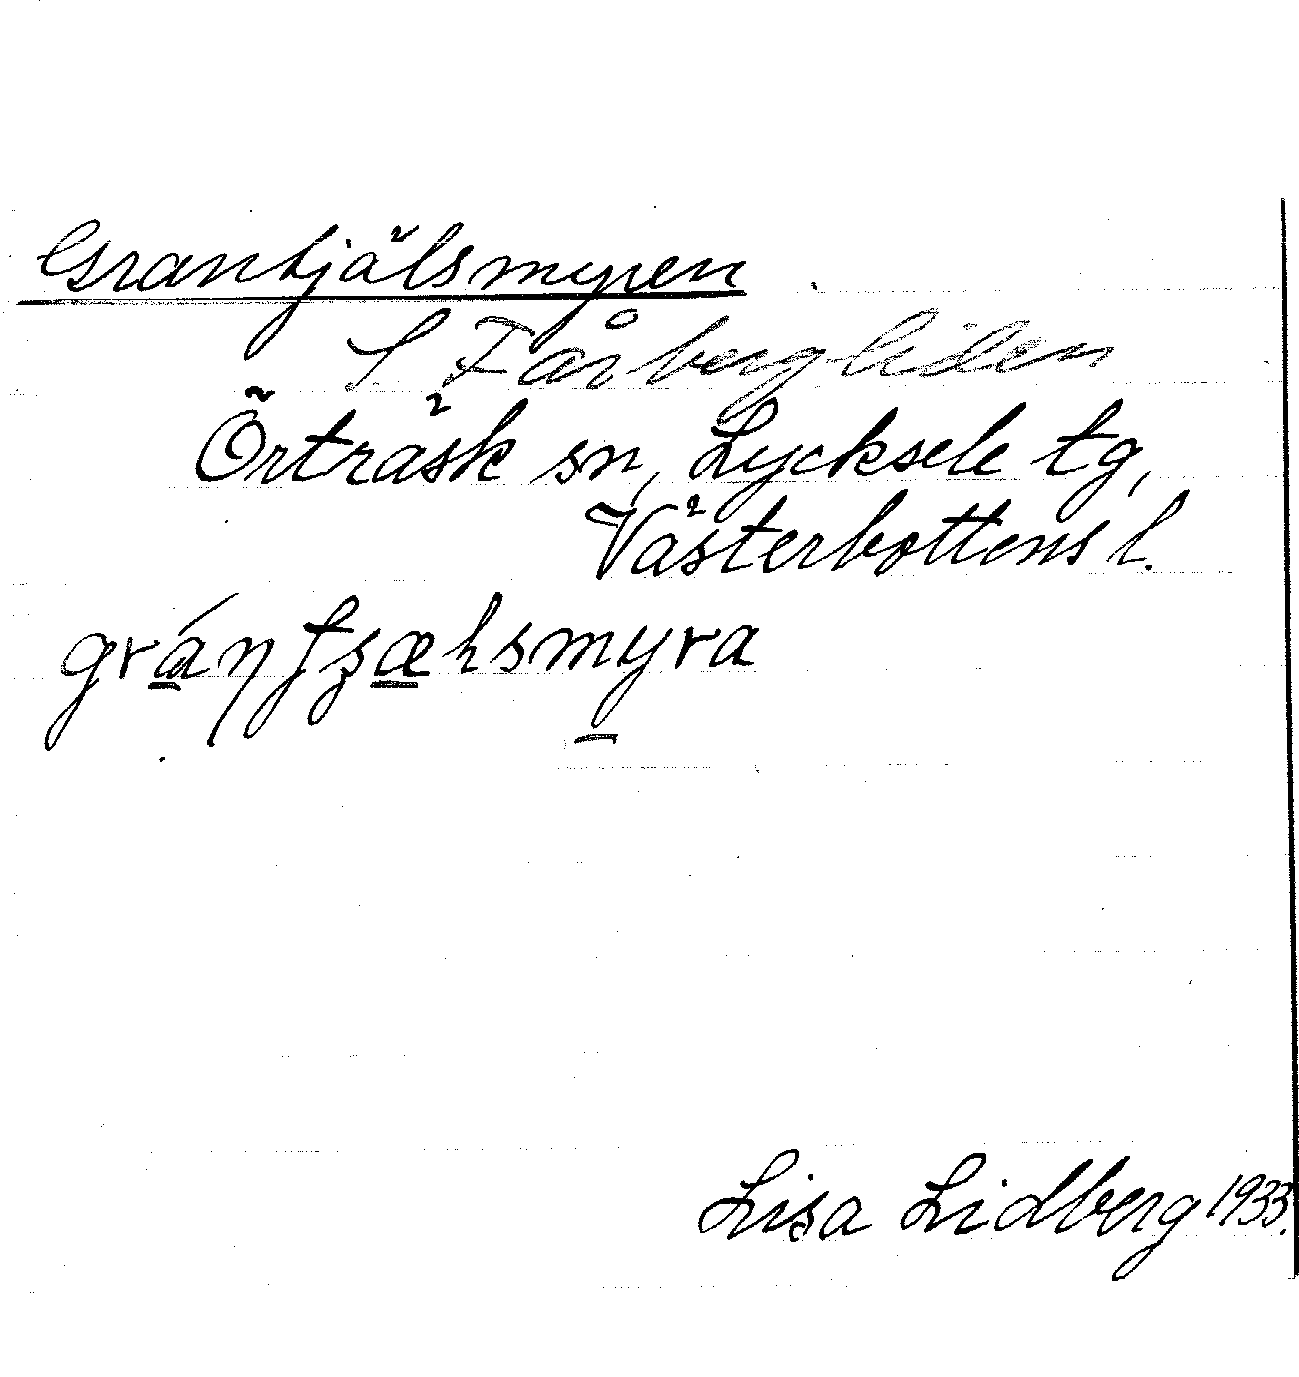 Grantjälsmyren
S Fårbergliden
Örträsk sn, Lycksele tg,
Västerbottens l.
Lisa Lidberg 1933.